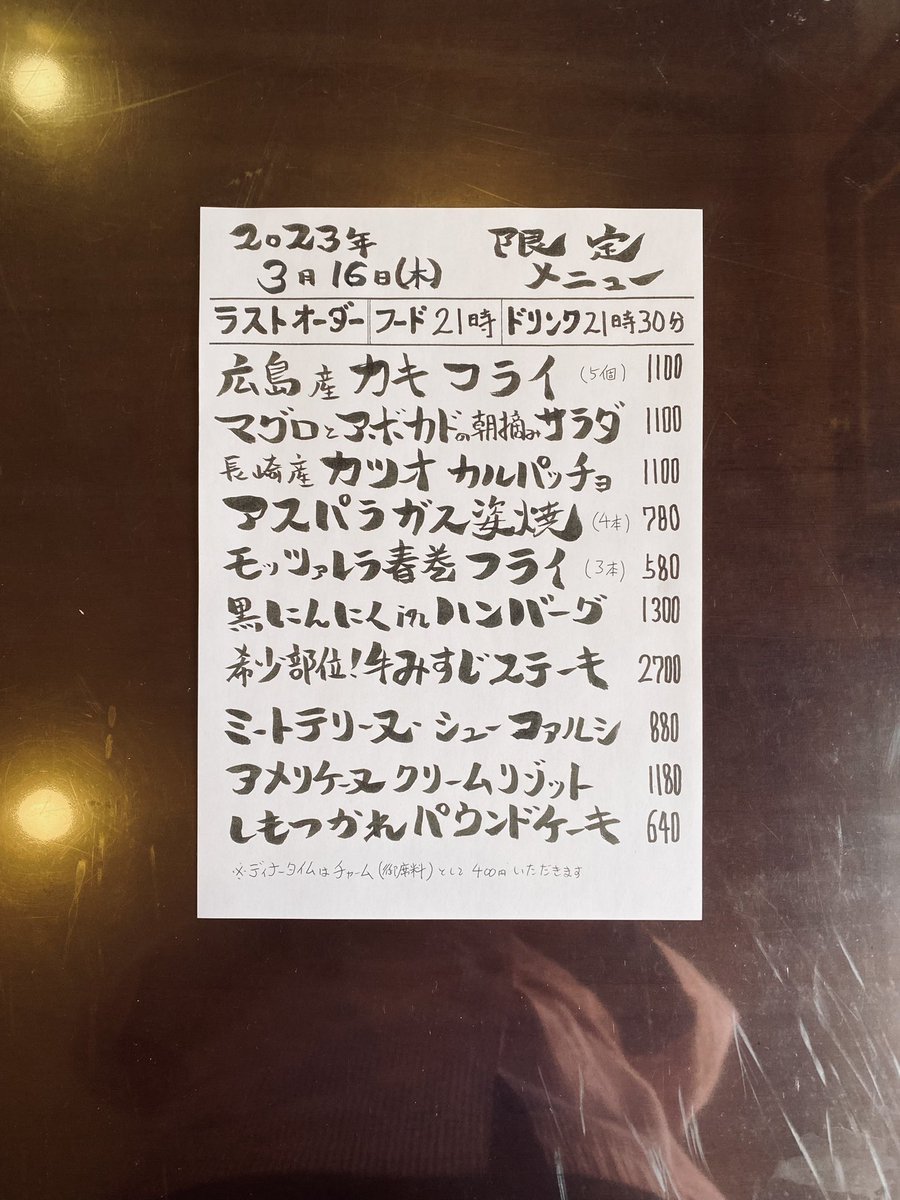 2023年 限定
3月16日(木) メニュー
ラストオーダー フード21時 ドリンク21時30分
広島産 カキ フライ (5個) 1100
マグロとアボカドの朝摘みサラダ 1100
長崎産 カツオ カルパッチョ 1100
アスパラガス姿焼 (4本) 780
モッツァレラ春巻 フライ (3本) 580
黒にんにく in ハンバーグ 1300
希少部位!牛みすじステーキ 2700
ミートテリーヌ・シューファルシ 880
アメリケーヌ クリームリゾット 1180
しもつかれ パウンドケーキ 640
※ディナータイムはチャーム(御席料)として400円いただきます